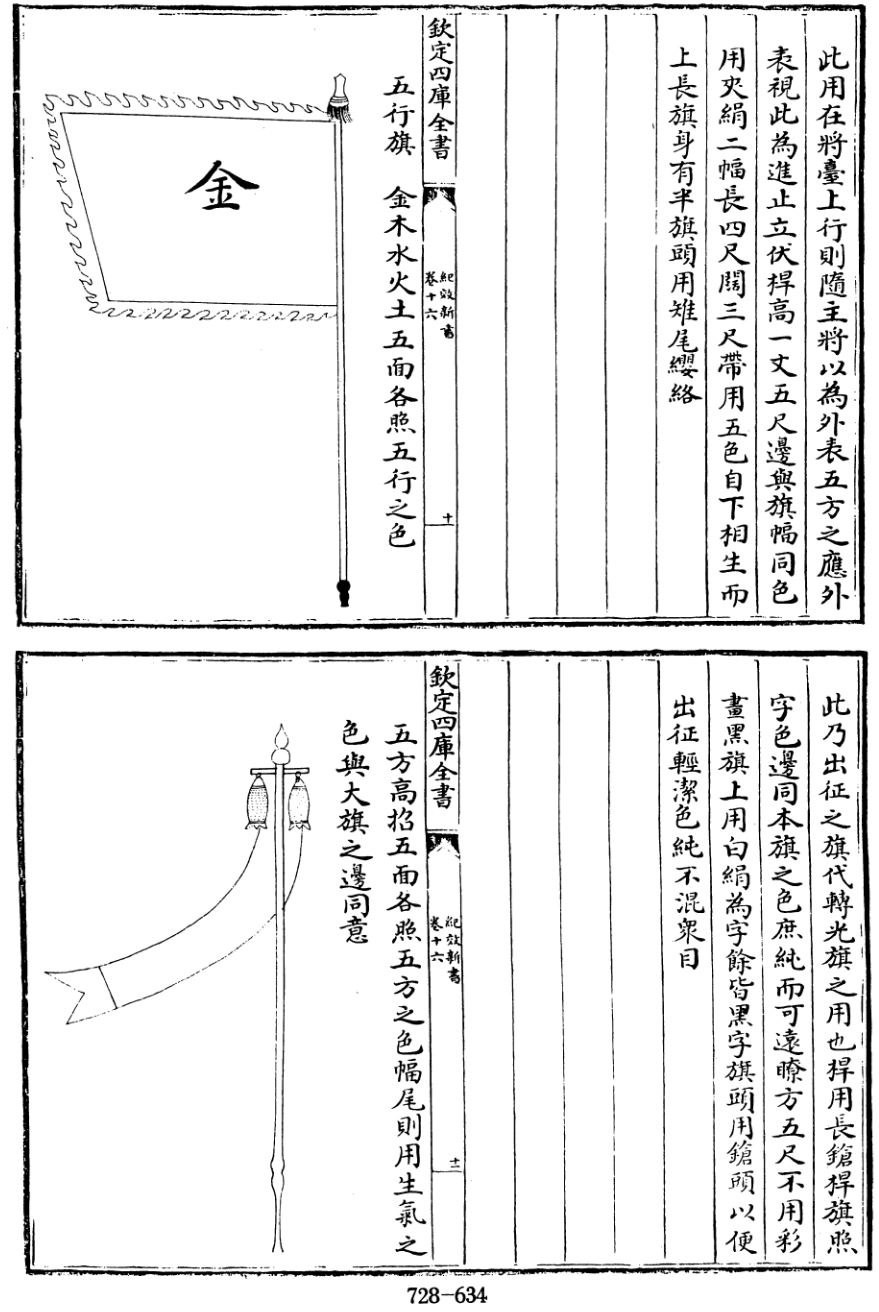 此用在將臺上行則隨主將以為外表五方之應外
表視此為進止立伏桿高一丈五尺邊與旗幅同色
用夾絹二幅長四尺闊三尺帶用五色自下相生而
上長旗身有半旗頭用雉尾纓絡
欽定四庫全書
紀效新書
卷十六
十
五行旗　金木水火土五面各照五行之色
金
此乃出征之旗代轉光旗之用也桿用長鎗桿旗照
字色邊同本旗之色庶純而可遠瞭方五尺不用彩
畫黑旗上用白絹為字餘皆黑字旗頭用鎗頭以便
出征輕潔色純不混衆目
欽定四庫全書
紀效新書
卷十六
十一
五方高招五面各照五方之色幅尾則用生氣之
色與大旗之邊同意
728-634